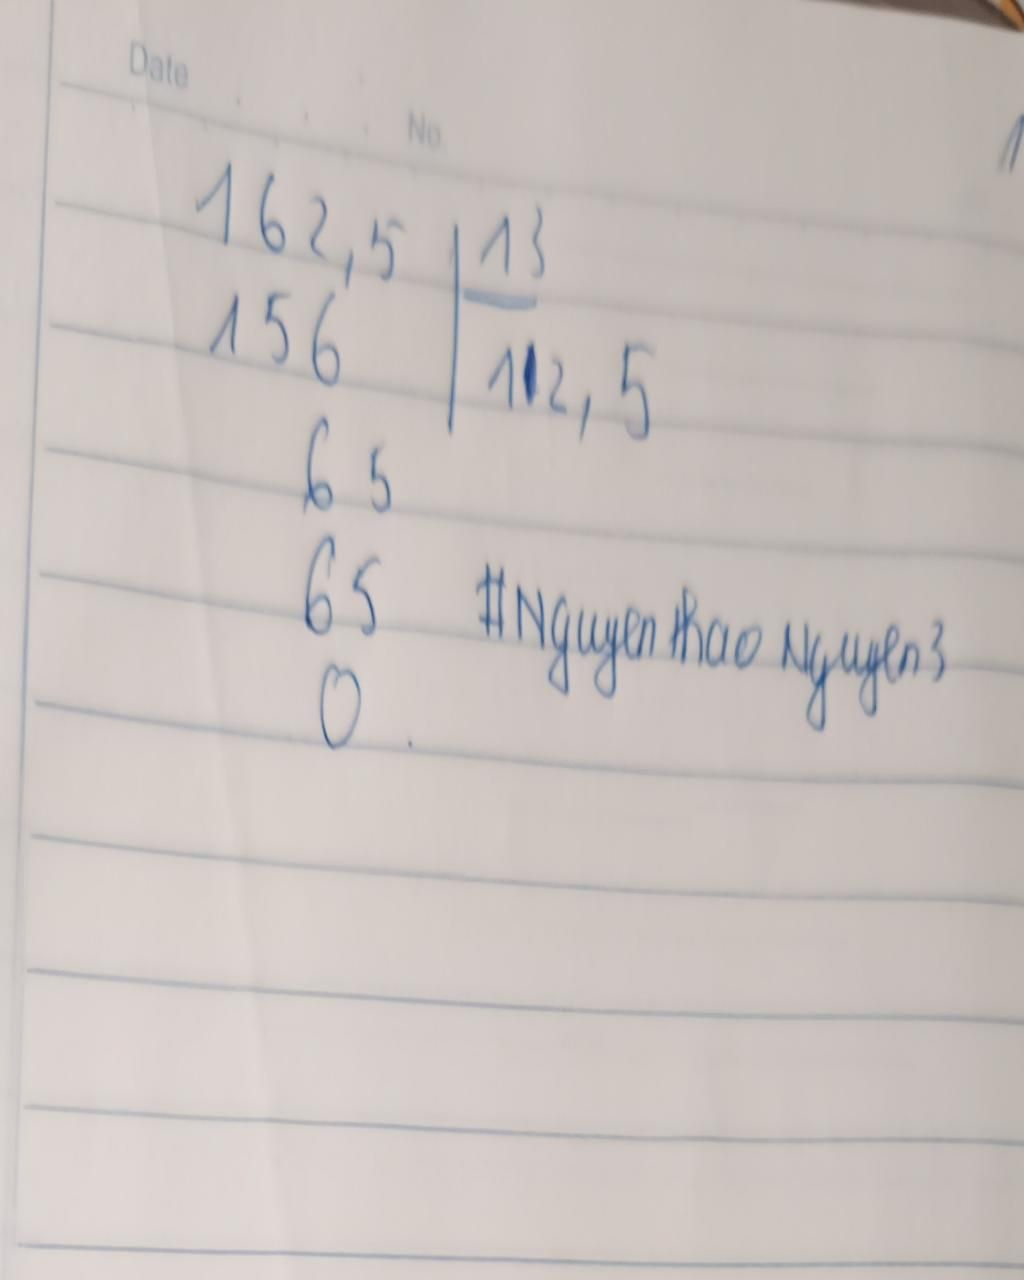 Date
No
162,5 13
156 112,5
65
65 #Nguyen thao Nguyen3
0.